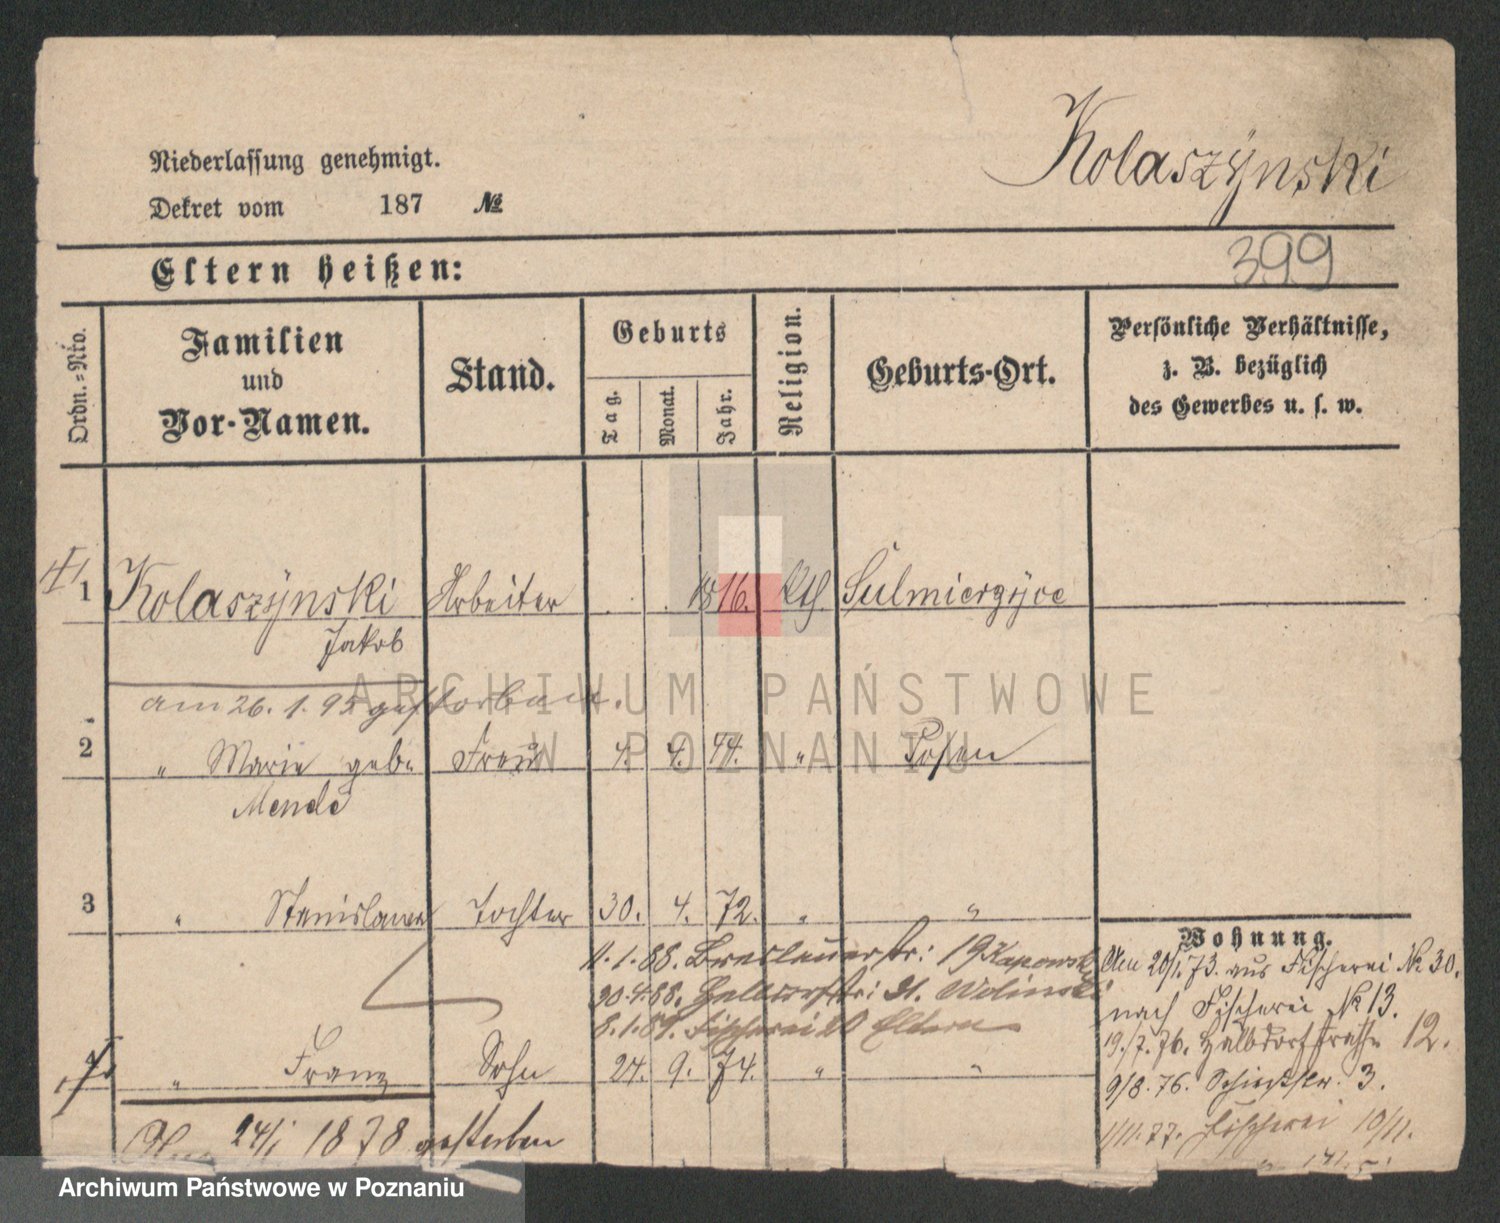 Kolaszynski
Niederlassung genehmigt.
Dekret vom 187 №
399
Eltern heißen:
Ordn.=Nro.
Familien
und
Vor-Namen.
Stand.
Geburts
Tag.
Monat.
Jahr.
Religion.
Geburts-Ort.
Persönliche Verhältnisse,
z. B. bezüglich
des Gewerbes u. s. w.
1 Kolaszynski Arbeiter 1816. Kth Sulmierzyce
Jakob
am 26. 1. 95 gestorben.
2 " Marie geb. Frau 4. 4. 44. " Posen
Mende
3 " Stanislawa Tochter 30. 4. 72. " "
11. 1. 88. Breslauerstr: 19 Kapowski
30. 4. 88. Halbdorfstr: 21. Wolinski
8. 1. 89. Fischerei 20 Eltern
" Franz Sohn 24. 9. 74. " "
24/1 1878 gestorben
Wohnung.
Am 20/1. 73. aus Fischerei № 30.
nach Fischerei № 13.
19./7. 76. Halbdorfstraße 12.
9/8. 76. Schießstr. 3.
1/11. 77. Fischerei 10/11.
ARCHIWUM PAŃSTWOWE
W POZNANIU
Archiwum Państwowe w Poznaniu